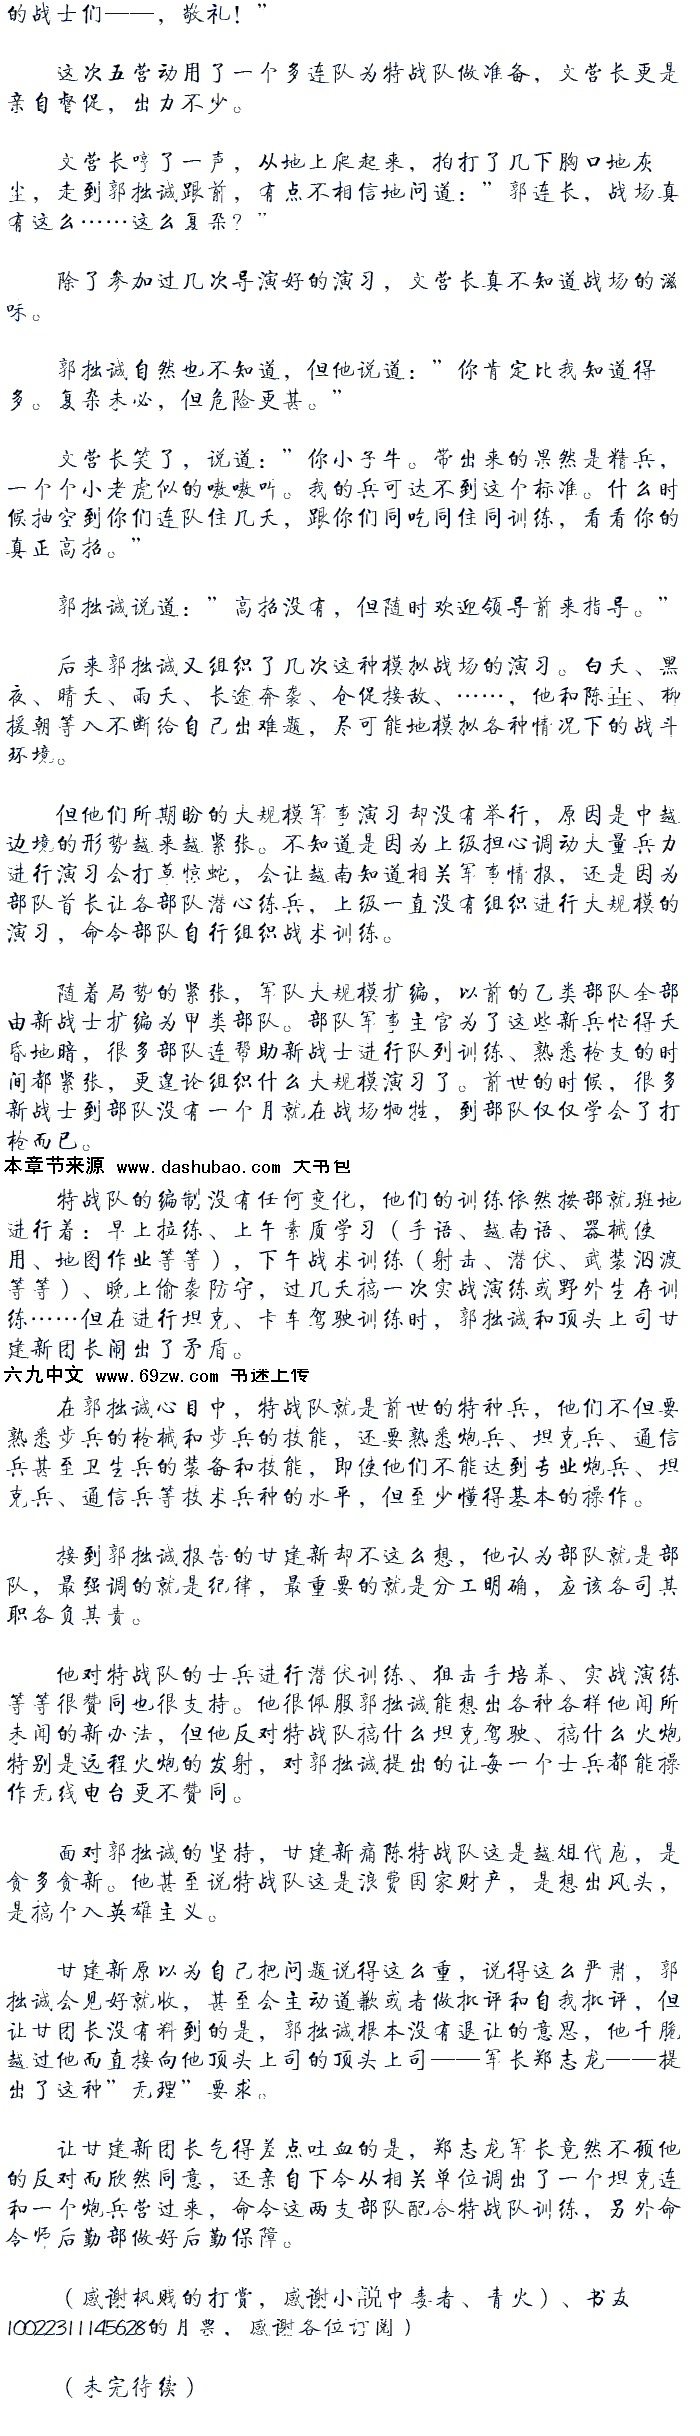 的战士们——，敬礼！”
这次五营动用了一个多连队为特战队做准备，文营长更是
亲自督促，出力不少。
文营长哼了一声，从地上爬起来，拍打了几下胸口地灰
尘，走到郭拙诚跟前，有点不相信地问道：”郭连长，战场真
有这么……这么复杂？”
除了参加过几次导演好的演习，文营长真不知道战场的滋
味。
郭拙诚自然也不知道，但他说道：”你肯定比我知道得
多。复杂未必，但危险更甚。”
文营长笑了，说道：”你小子牛。带出来的果然是精兵，
一个个小老虎似的嗷嗷叫。我的兵可达不到这个标准。什么时
候抽空到你们连队住几天，跟你们同吃同住同训练，看看你的
真正高招。”
郭拙诚说道：”高招没有，但随时欢迎领导前来指导。”
后来郭拙诚又组织了几次这种模拟战场的演习。白天、黑
夜、晴天、雨天、长途奔袭、仓促接敌、……，他和陈垚、柳
援朝等人不断给自己出难题，尽可能地模拟各种情况下的战斗
环境。
但他们所期盼的大规模军事演习却没有举行，原因是中越
边境的形势越来越紧张。不知道是因为上级担心调动大量兵力
进行演习会打草惊蛇，会让越南知道相关军事情报，还是因为
部队首长让各部队潜心练兵，上级一直没有组织进行大规模的
演习，命令部队自行组织战术训练。
随着局势的紧张，军队大规模扩编，以前的乙类部队全部
由新战士扩编为甲类部队。部队军事主官为了这些新兵忙得天
昏地暗，很多部队连帮助新战士进行队列训练、熟悉枪支的时
间都紧张，更遑论组织什么大规模演习了。前世的时候，很多
新战士到部队没有一个月就在战场牺牲，到部队仅仅学会了打
枪而已。
本章节来源 www.dashubao.com 大书包
特战队的编制没有任何变化，他们的训练依然按部就班地
进行着：早上拉练、上午素质学习（手语、越南语、器械使
用、地图作业等等），下午战术训练（射击、潜伏、武装泅渡
等等）、晚上偷袭防守，过几天搞一次实战演练或野外生存训
练……但在进行坦克、卡车驾驶训练时，郭拙诚和顶头上司甘
建新团长闹出了矛盾。
六九中文 www.69zw.com 书迷上传
在郭拙诚心目中，特战队就是前世的特种兵，他们不但要
熟悉步兵的枪械和步兵的技能，还要熟悉炮兵、坦克兵、通信
兵甚至卫生兵的装备和技能，即使他们不能达到专业炮兵、坦
克兵、通信兵等技术兵种的水平，但至少懂得基本的操作。
接到郭拙诚报告的甘建新却不这么想，他认为部队就是部
队，最强调的就是纪律，最重要的就是分工明确，应该各司其
职各负其责。
他对特战队的士兵进行潜伏训练、狙击手培养、实战演练
等等很赞同也很支持。他很佩服郭拙诚能想出各种各样他闻所
未闻的新办法，但他反对特战队搞什么坦克驾驶、搞什么火炮
特别是远程火炮的发射，对郭拙诚提出的让每一个士兵都能操
作无线电台更不赞同。
面对郭拙诚的坚持，甘建新痛陈特战队这是越俎代庖，是
贪多贪新。他甚至说特战队这是浪费国家财产，是想出风头，
是搞个人英雄主义。
甘建新原以为自己把问题说得这么重，说得这么严肃，郭
拙诚会见好就收，甚至会主动道歉或者做批评和自我批评，但
让甘团长没有料到的是，郭拙诚根本没有退让的意思，他干脆
越过他而直接向他顶头上司的顶头上司——军长郑志龙——提
出了这种”无理”要求。
让甘建新团长气得差点吐血的是，郑志龙军长竟然不顾他
的反对而欣然同意，还亲自下令从相关单位调出了一个坦克连
和一个炮兵营过来，命令这两支部队配合特战队训练，另外命
令师后勤部做好后勤保障。
（感谢枫贱的打赏，感谢小説中毒者、青火）、书友
10022311145628的月票，感谢各位订阅）
（未完待续）